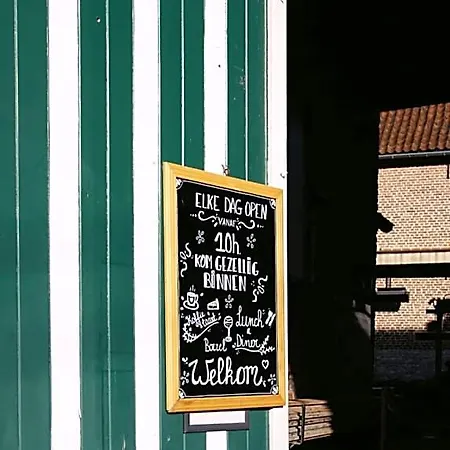 ELKE DAG OPEN
VANAF
10h
KOM GEZELLIG
BINNEN
Koffie
Lunch
&
Borrel Diner
Welkom